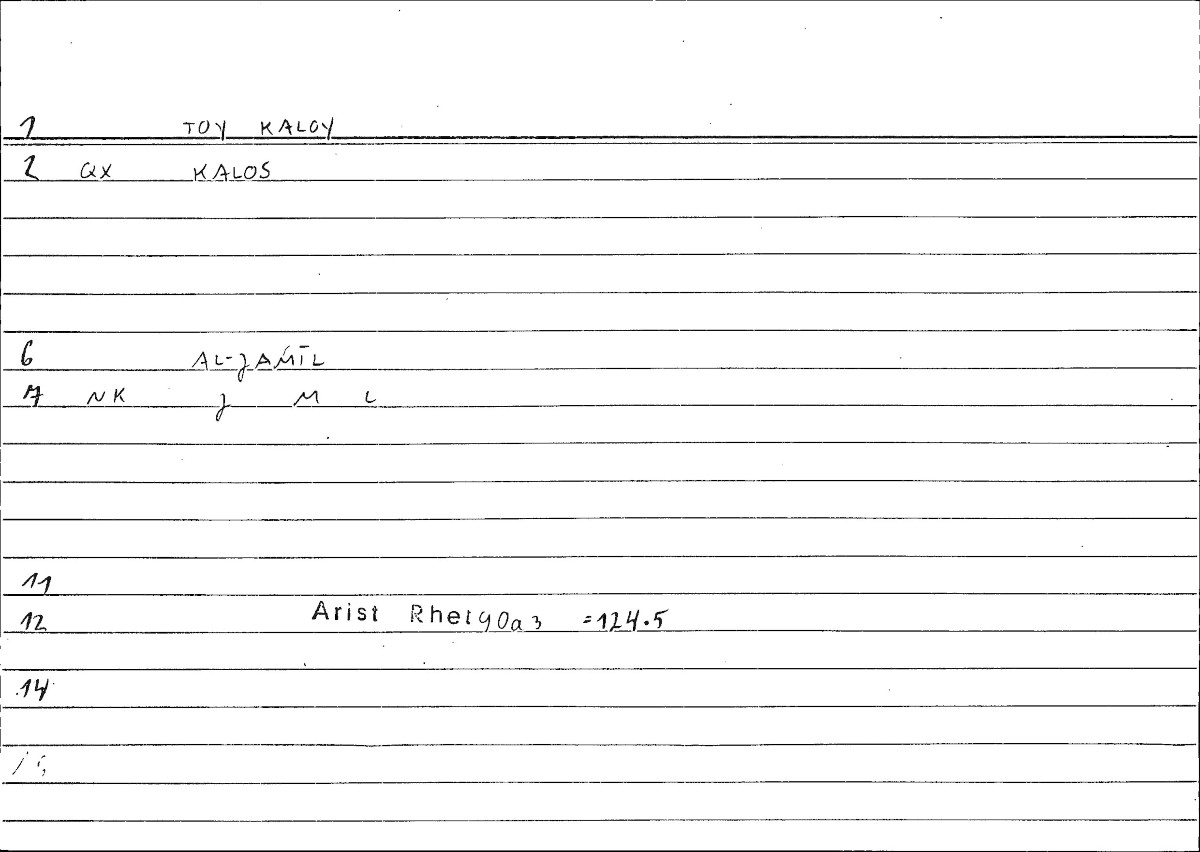 1 TOY KALOY
2 QX KALOS
6 AL-JAMĪL
7 NK J M L
11
12 Arist Rhet 90a3 =124.5
14
15